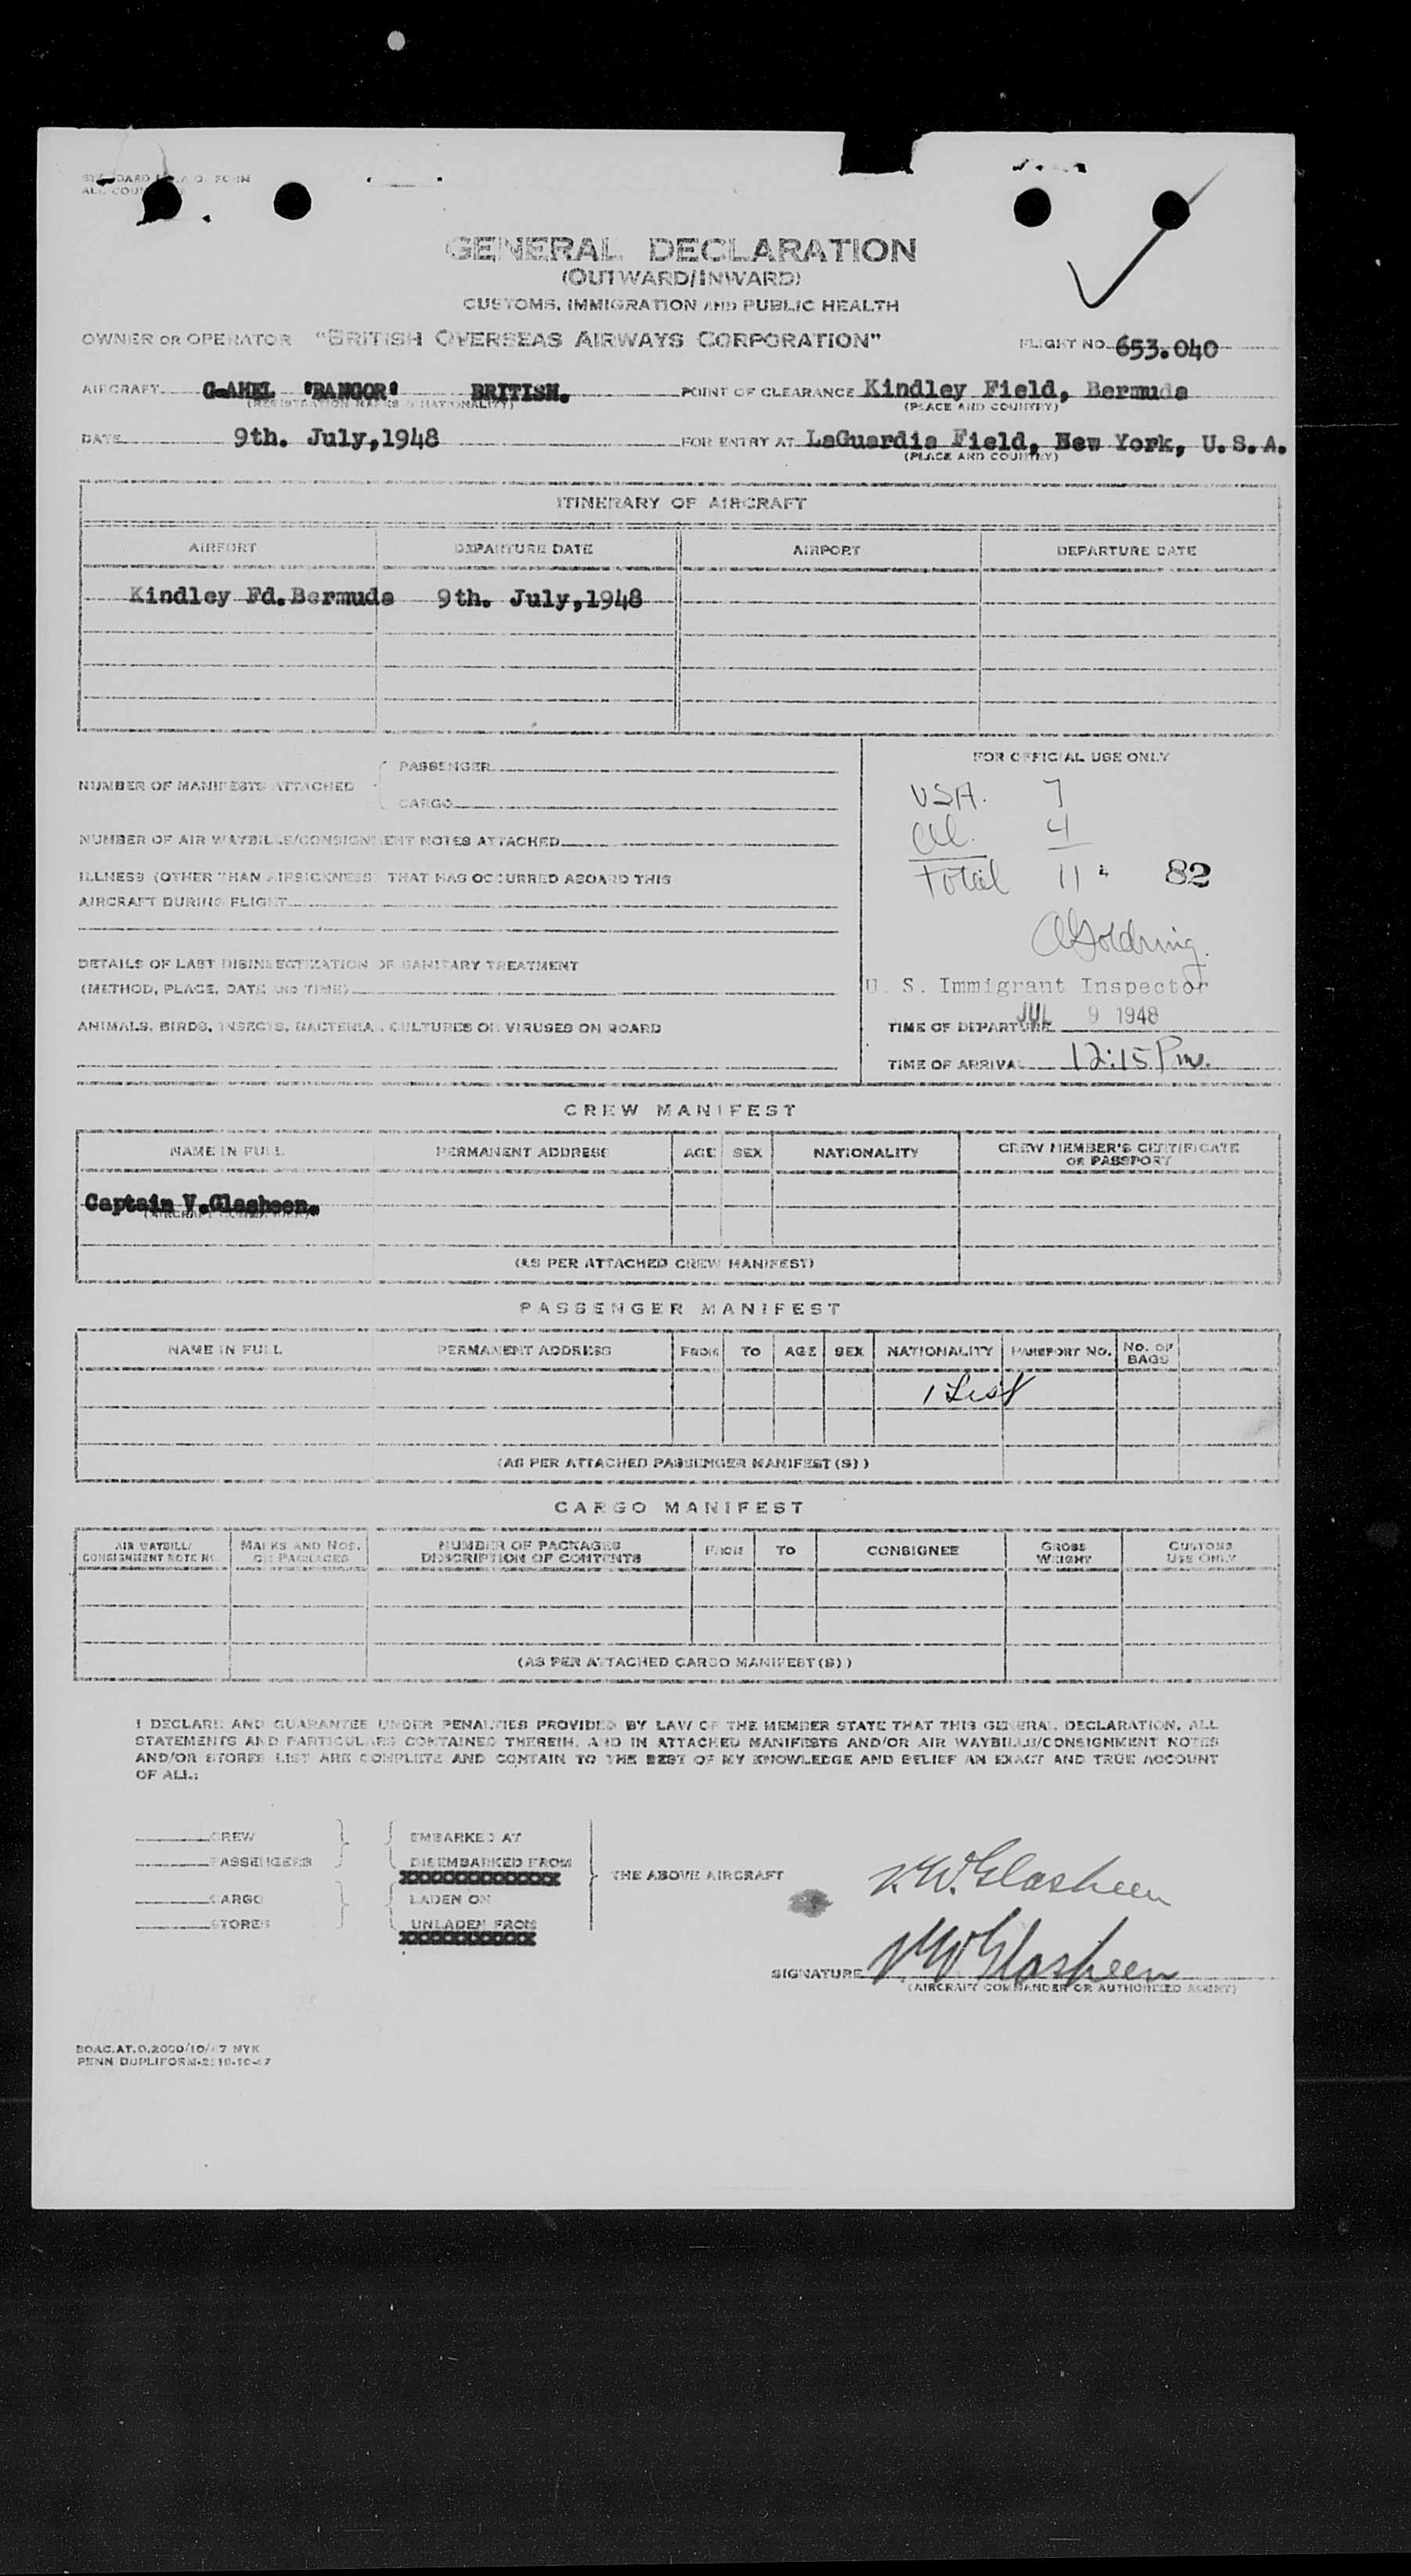 GENERAL DECLARATION
(OUTWARD/INWARD)
CUSTOMS, IMMIGRATION AND PUBLIC HEALTH
OWNER OR OPERATOR "BRITISH OVERSEAS AIRWAYS CORPORATION" FLIGHT NO. 653.040
AIRCRAFT G-AHEL "BANGOR" BRITISH. POINT OF CLEARANCE Kindley Field, Bermuda
(REGISTRATION MARKS & NATIONALITY) (PLACE AND COUNTRY)
DATE 9th. July,1948 FOR ENTRY AT LaGuardia Field, New York, U.S.A.
(PLACE AND COUNTRY)
ITINERARY OF AIRCRAFT
AIRPORT DEPARTURE DATE AIRPORT DEPARTURE DATE
Kindley Fd.Bermuda 9th. July,1948
FOR OFFICIAL USE ONLY
NUMBER OF MANIFESTS ATTACHED { PASSENGER
CARGO
USA. 7
al. 4
Total 11 82
NUMBER OF AIR WAYBILLS/CONSIGNMENT NOTES ATTACHED
ILLNESS (OTHER THAN AIRSICKNESS) THAT HAS OCCURRED ABOARD THIS
AIRCRAFT DURING FLIGHT
DETAILS OF LAST DISINSECTIZATION OR SANITARY TREATMENT
(METHOD, PLACE, DATE AND TIME)
ANIMALS, BIRDS, INSECTS, BACTERIA, CULTURES OR VIRUSES ON BOARD
U. S. Immigrant Inspector
JUL 9 1948
TIME OF DEPARTURE
TIME OF ARRIVAL 12:15 Pm.
CREW MANIFEST
NAME IN FULL PERMANENT ADDRESS AGE SEX NATIONALITY CREW MEMBER'S CERTIFICATE
OR PASSPORT
Captain V.Glasheen.
(AIRCRAFT COMMANDER)
(AS PER ATTACHED CREW MANIFEST)
PASSENGER MANIFEST
NAME IN FULL PERMANENT ADDRESS FROM TO AGE SEX NATIONALITY PASSPORT NO. NO. OF
BAGS
1 List
(AS PER ATTACHED PASSENGER MANIFEST(S))
CARGO MANIFEST
AIR WAYBILL/
CONSIGNMENT NOTE NO. MARKS AND NOS.
ON PACKAGES NUMBER OF PACKAGES
DESCRIPTION OF CONTENTS FROM TO CONSIGNEE GROSS
WEIGHT CUSTOMS
USE ONLY
(AS PER ATTACHED CARGO MANIFEST(S))
I DECLARE AND GUARANTEE UNDER PENALTIES PROVIDED BY LAW OF THE MEMBER STATE THAT THIS GENERAL DECLARATION, ALL
STATEMENTS AND PARTICULARS CONTAINED THEREIN, AND IN ATTACHED MANIFESTS AND/OR AIR WAYBILLS/CONSIGNMENT NOTES
AND/OR STORES LIST ARE COMPLETE AND CONTAIN TO THE BEST OF MY KNOWLEDGE AND BELIEF AN EXACT AND TRUE ACCOUNT
OF ALL:
CREW EMBARKED AT
PASSENGERS DISEMBARKED FROM
THE ABOVE AIRCRAFT
CARGO LADEN ON
STORES UNLADEN FROM
V.W.Glasheen
SIGNATURE VWGlasheen
(AIRCRAFT COMMANDER OR AUTHORIZED AGENT)